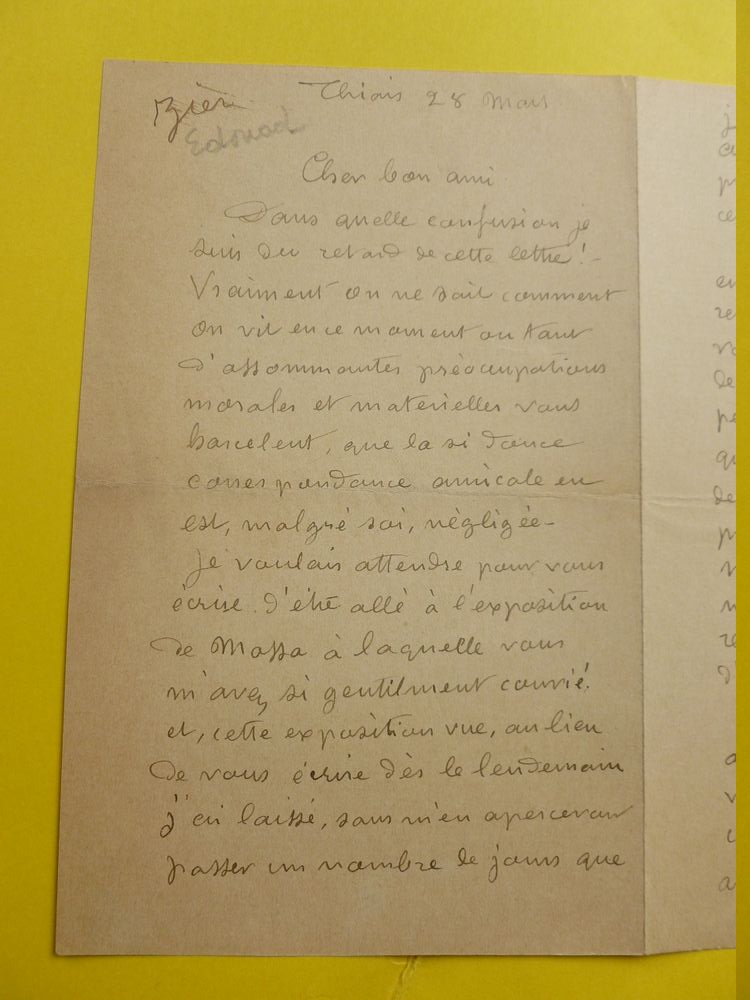 Edouad
Thiais 28 Mars
Cher bon ami
Dans quelle confusion je
suis du retard de cette lettre! -
Vraiment on ne sait comment
on vit en ce moment ou tant
d'assommantes préocupations
morales et materielles vous
harcelent, que la si douce
correspondance amicale en
est, malgré soi, négligée -
je voulais attendre pour vous
écrire d'être allé à l'exposition
de Mossa à laquelle vous
m'avez si gentilment convié.
et, cette exposition vue, au lieu
de vous écrire dès le lendemain
j'ai laissé, sans m'en apercevoir
passer un nombre de jours que